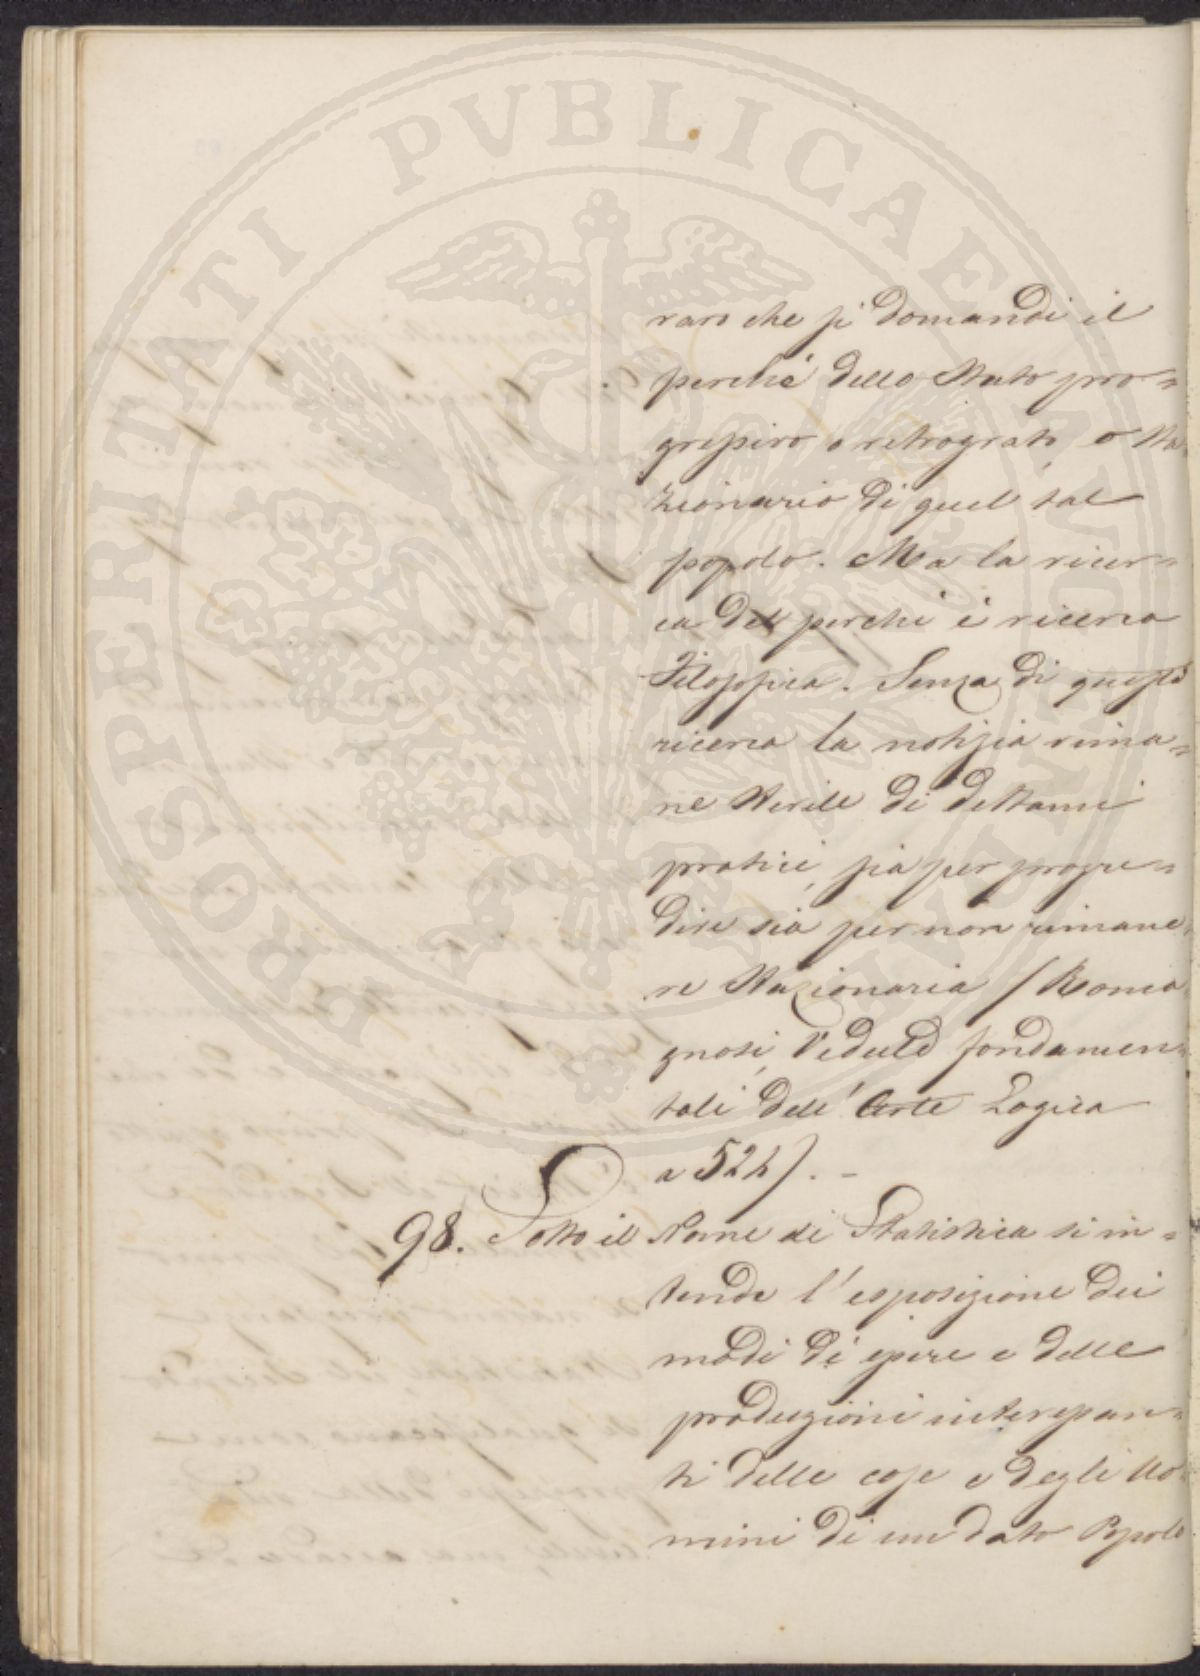 PROSPERITATI PUBLICAE AUGENDAE
raro che si domandi il
perchè dello Stato pro=
gressivo, o retrogrado, o Sta=
zionario di quel tal
popolo. Ma la ricer=
ca del perchè è ricerca
Filosofica. Senza di questa
ricerca la notizia rima=
ne sterile di dettami
pratici, sia per progre=
dire sia per non rimane=
re Stazionaria (Roma=
gnosi, Vedute fondamen=
tali dell'Arte Logica
a 524). -
98. Sotto il Nome di Statistica si in=
tende l'esposizione dei
modi di essere e delle
produzioni interessan=
ti delle cose e degli Uo=
mini di un dato Popolo.